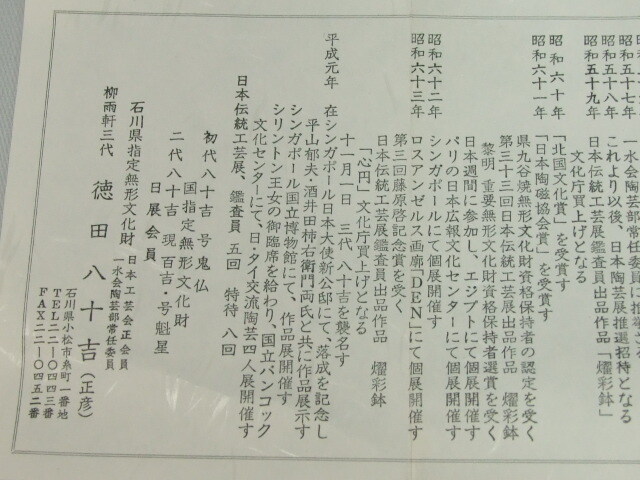 一水会陶芸部常任委員に推挙さる
昭和五十七年 これより以後、日本陶芸展推選招待となる
昭和五十八年 日本伝統工芸展鑑査員出品作品「燿彩鉢」
昭和五十九年 文化庁買上げとなる
昭和六十年 「北国文化賞」を受賞す
「日本陶磁協会賞」を受賞す
昭和六十一年 県九谷焼無形文化財資格保持者の認定を受く
第三十三回日本伝統工芸展出品作品 燿彩鉢
黎明 重要無形文化財資格保持者選賞を受く
日本週間に参加し、エジプトにて個展開催す
パリの日本広報文化センターにて個展開催す
昭和六十二年 シンガポールにて個展開催す
昭和六十三年 ロスアンゼルス画廊「DEN」にて個展開催す
第三回藤原啓記念賞を受く
日本伝統工芸展鑑査員出品作品 燿彩鉢
「心円」文化庁買上げとなる
十一月一日 三代 八十吉を襲名す
平成元年 在シンガポール日本大使新公邸にて、落成を記念し
平山郁夫、酒井田柿右衛門両氏と共に作品展示す
シンガポール国立博物館にて、作品展開催す
シリントン王女の御臨席を給わり、国立バンコック
文化センターにて、日・タイ交流陶芸四人展開催す
日本伝統工芸展、鑑査員 五回 特待 八回
初代八十吉 号鬼仏
国指定無形文化財
二代八十吉 現百吉・号魁星
日展会員
石川県指定無形文化財 日本工芸会正会員
一水会陶芸部常任委員
柳雨軒三代 徳田八十吉(正彦)
石川県小松市糸町一番地
TEL二二―〇四四三番
FAX二二―〇四五二番